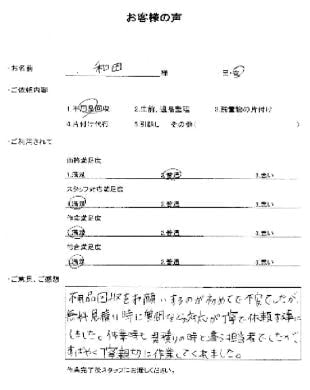 お客様の声
・お名前 和田 様
・ご依頼内容
1.不用品回収 2.生前、遺品整理 3.廃棄物の片付け
4.片付け代行 5.引越し その他( )
・ご利用されて
価格満足度
1.満足 2.普通 3.悪い
スタッフ対応満足度
1.満足 2.普通 3.悪い
作業満足度
1.満足 2.普通 3.悪い
総合満足度
1.満足 2.普通 3.悪い
・ご意見、ご感想
不用品回収をお願いするのが初めてで不安でしたが、
無料見積り時に質問などの対応が丁寧で依頼する事に
しました。作業時も見積りの時と違う担当者でしたので、
すばやく丁寧親切に作業してくれました。
作業完了後スタッフにお渡しください。